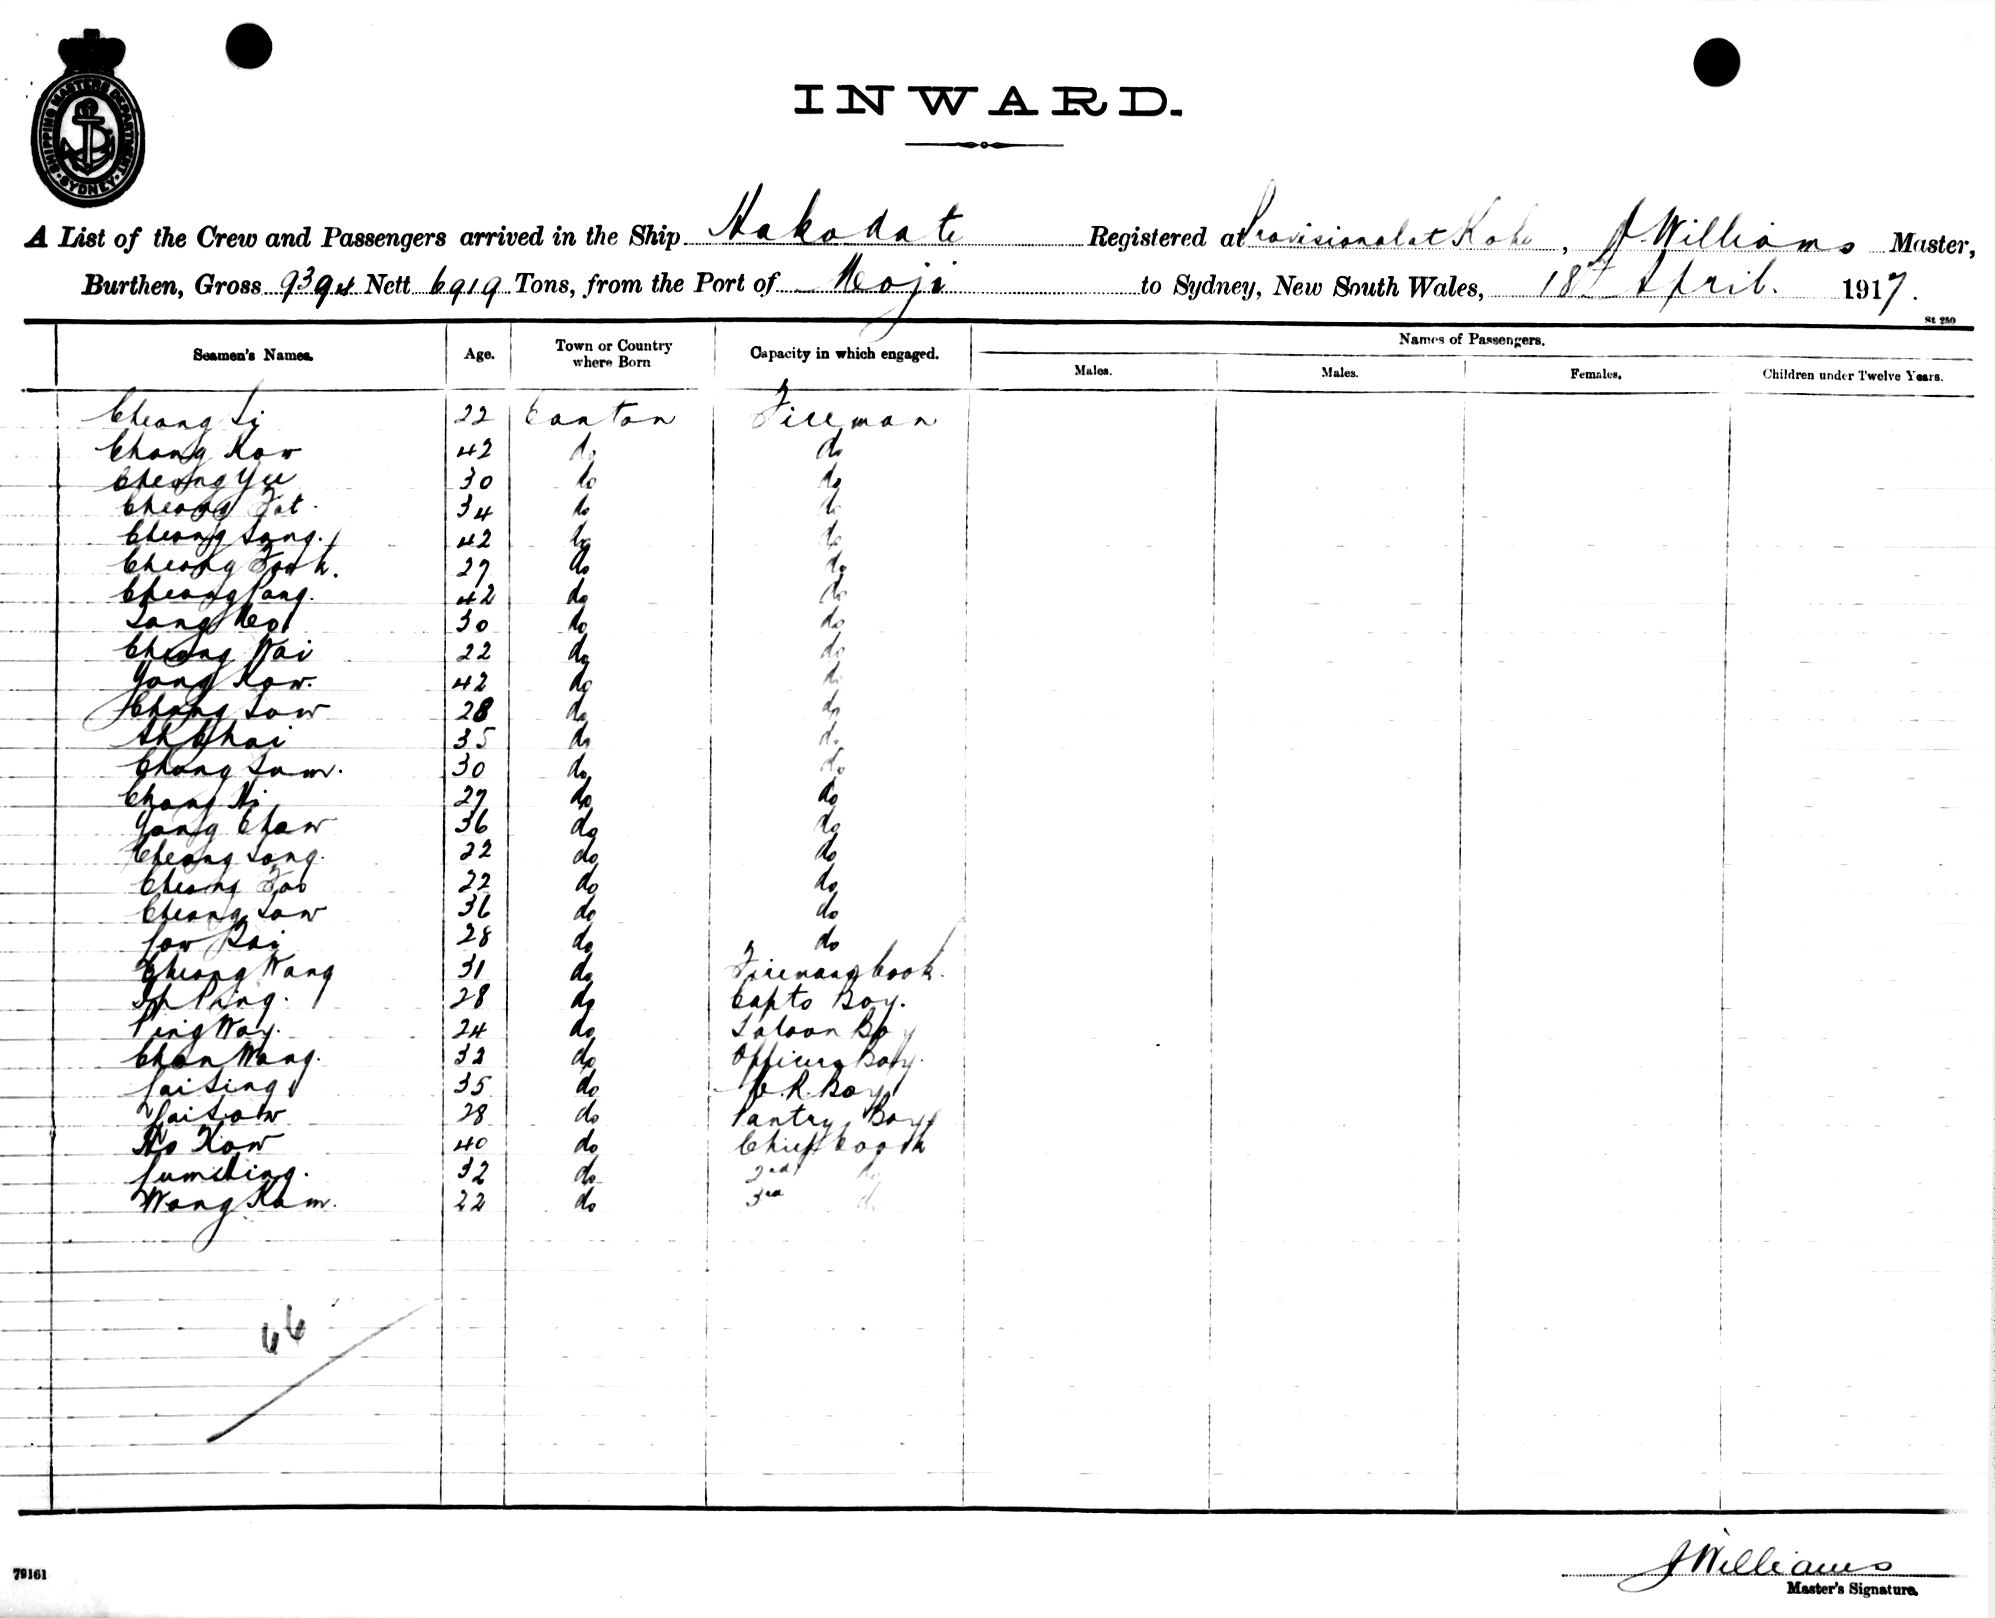 SHIPPING MASTERS DEPARTMENT SYDNEY
INWARD.
A List of the Crew and Passengers arrived in the Ship Hakodate Registered at Provisional at Kobe, J. Williams Master,
Burthen, Gross 9394 Nett 6919 Tons, from the Port of Moji to Sydney, New South Wales, 18th April. 1917.
St 250
Seamen's Names. Age. Town or Country where Born Capacity in which engaged. Names of Passengers.
Males. Males. Females. Children under Twelve Years.
Cheong Li 22 Canton Fireman
Chong Kow 42 do do
Cheong Yee 30 do do
Cheong Fat. 34 do do
Cheong Song. 42 do do
Cheong Fook. 27 do do
Cheong Pong. 42 do do
Song 30 do do
Cheong Wai 22 do do
Yong Kow. 42 do do
Chong Sow 28 do do
Ah Chai 35 do do
Chong Sam. 30 do do
Chong Hi 27 do do
Yong Chow 36 do do
Cheong Song. 22 do do
Cheong Foo 22 do do
Cheong Sow 36 do do
28 do do
Cheong Wang 31 do Firemans Cook.
Ping. 28 do Capts Boy.
Ping Way. 24 do Saloon Boy
Chon Wang. 32 do Officers Boy.
Lai Sing 35 do E. R. Boy
Lai Sow 28 do Pantry Boy
Ho Kow 40 do Chief Cook
32 do 2nd do
Wong Kam. 22 do 3rd do
66
J Williams
79161
Master's Signature.